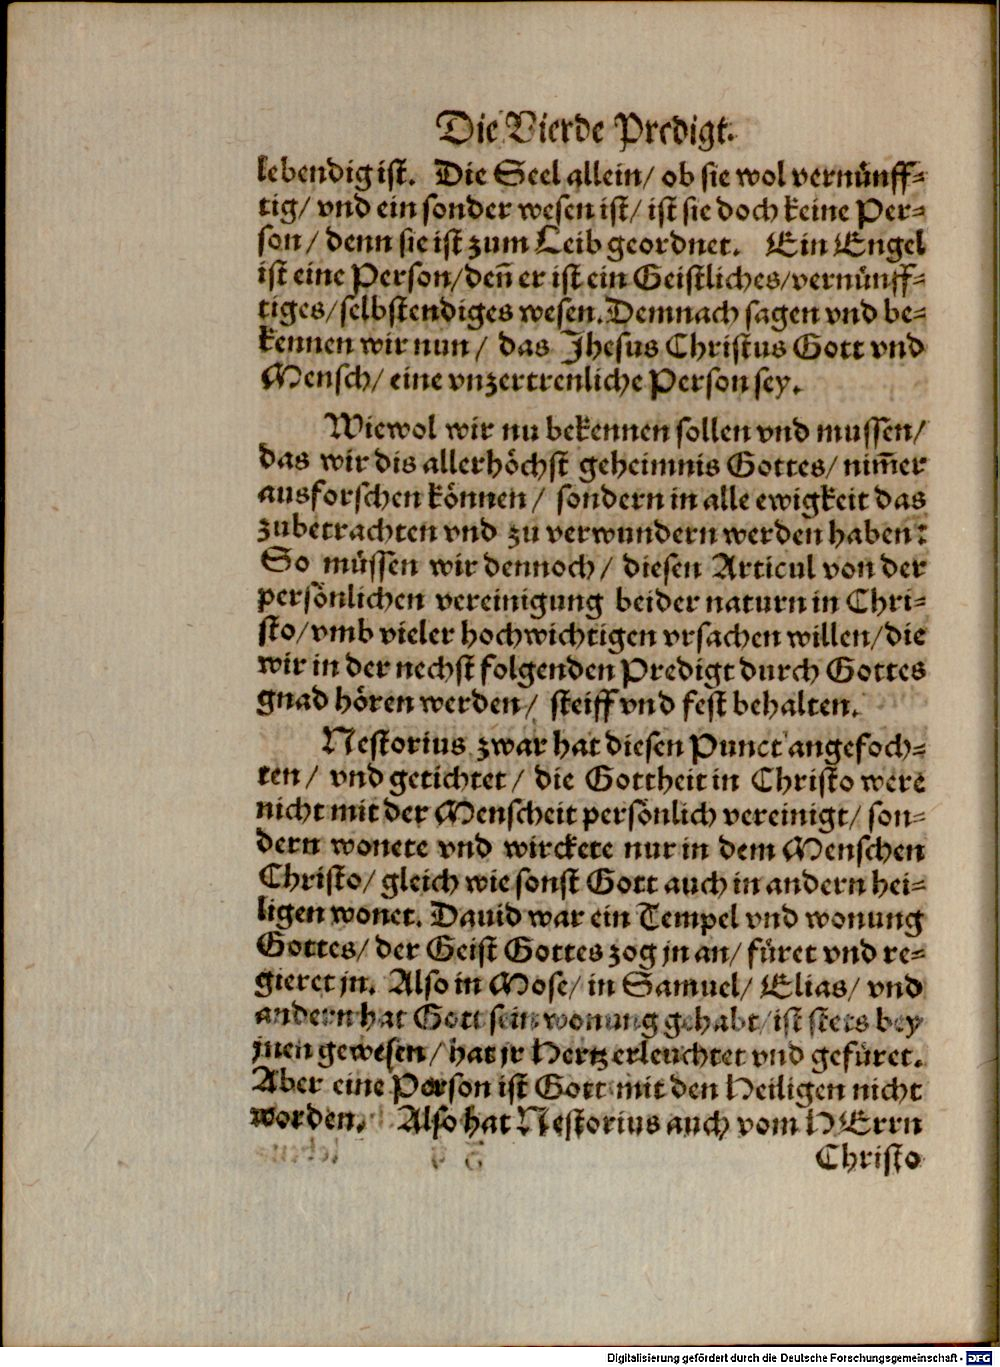 Die Vierde Predigt.
lebendig ist. Die Seel allein/ ob sie wol vernünff-
tig/ vnd ein sonder wesen ist/ ist sie doch keine Per-
son/ denn sie ist zum Leib geordnet. Ein Engel
ist eine Person/ deñ er ist ein Geistliches/ vernünff-
tiges/ selbstendiges wesen. Demnach sagen vnd be-
kennen wir nun/ das Jhesus Christus Gott vnd
Mensch/ eine vnzertrenliche Person sey.
Wiewol wir nu bekennen sollen vnd mussen/
das wir dis allerhöchst geheimnis Gottes/ nim̃er
ausforschen können/ sondern in alle ewigkeit das
zubetrachten vnd zu verwundern werden haben:
So müssen wir dennoch/ diesen Articul von der
persönlichen vereinigung beider naturn in Chri-
sto/ vmb vieler hochwichtigen vrsachen willen/ die
wir in der nechst folgenden Predigt durch Gottes
gnad hören werden/ steiff vnd fest behalten.
Nestorius zwar hat diesen Punct angefoch-
ten/ vnd getichtet/ die Gottheit in Christo were
nicht mit der Menscheit persönlich vereinigt/ son-
dern wonete vnd wirckete nur in dem Menschen
Christo/ gleich wie sonst Gott auch in andern hei-
ligen wonet. Dauid war ein Tempel vnd wonung
Gottes/ der Geist Gottes zog jn an/ füret vnd re-
gieret jn. Also in Mose/ in Samuel/ Elias/ vnd
andern hat Gott sein wonung gehabt/ ist stets bey
jnen gewesen/ hat jr Hertz erleuchtet vnd gefüret.
Aber eine Person ist Gott mit den Heiligen nicht
worden. Also hat Nestorius auch vom HErrn
Christo
Digitalisierung gefördert durch die Deutsche Forschungsgemeinschaft - DFG